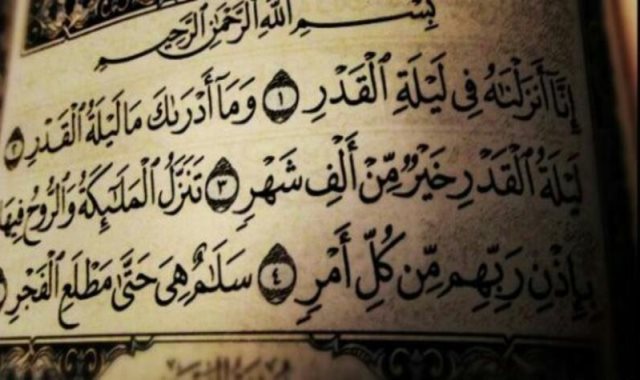 بِسْمِ ٱللَّهِ ٱلرَّحْمَٰنِ ٱلرَّحِيمِ
إِنَّآ أَنزَلْنَٰهُ فِى لَيْلَةِ ٱلْقَدْرِ ١ وَمَآ أَدْرَىٰكَ مَا لَيْلَةُ ٱلْقَدْرِ ٢
لَيْلَةُ ٱلْقَدْرِ خَيْرٌ مِّنْ أَلْفِ شَهْرٍ ٣ تَنَزَّلُ ٱلْمَلَٰٓئِكَةُ وَٱلرُّوحُ فِيهَا
بِإِذْنِ رَبِّهِم مِّن كُلِّ أَمْرٍ ٤ سَلَٰمٌ هِىَ حَتَّىٰ مَطْلَعِ ٱلْفَجْرِ